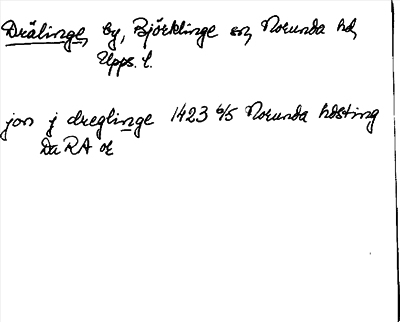 Drälinge, by, Björklinge sn, Norunda hd,
Upps. l.
jon j dreglinge 1423 6/5 Norunda hdsting
Da RA or